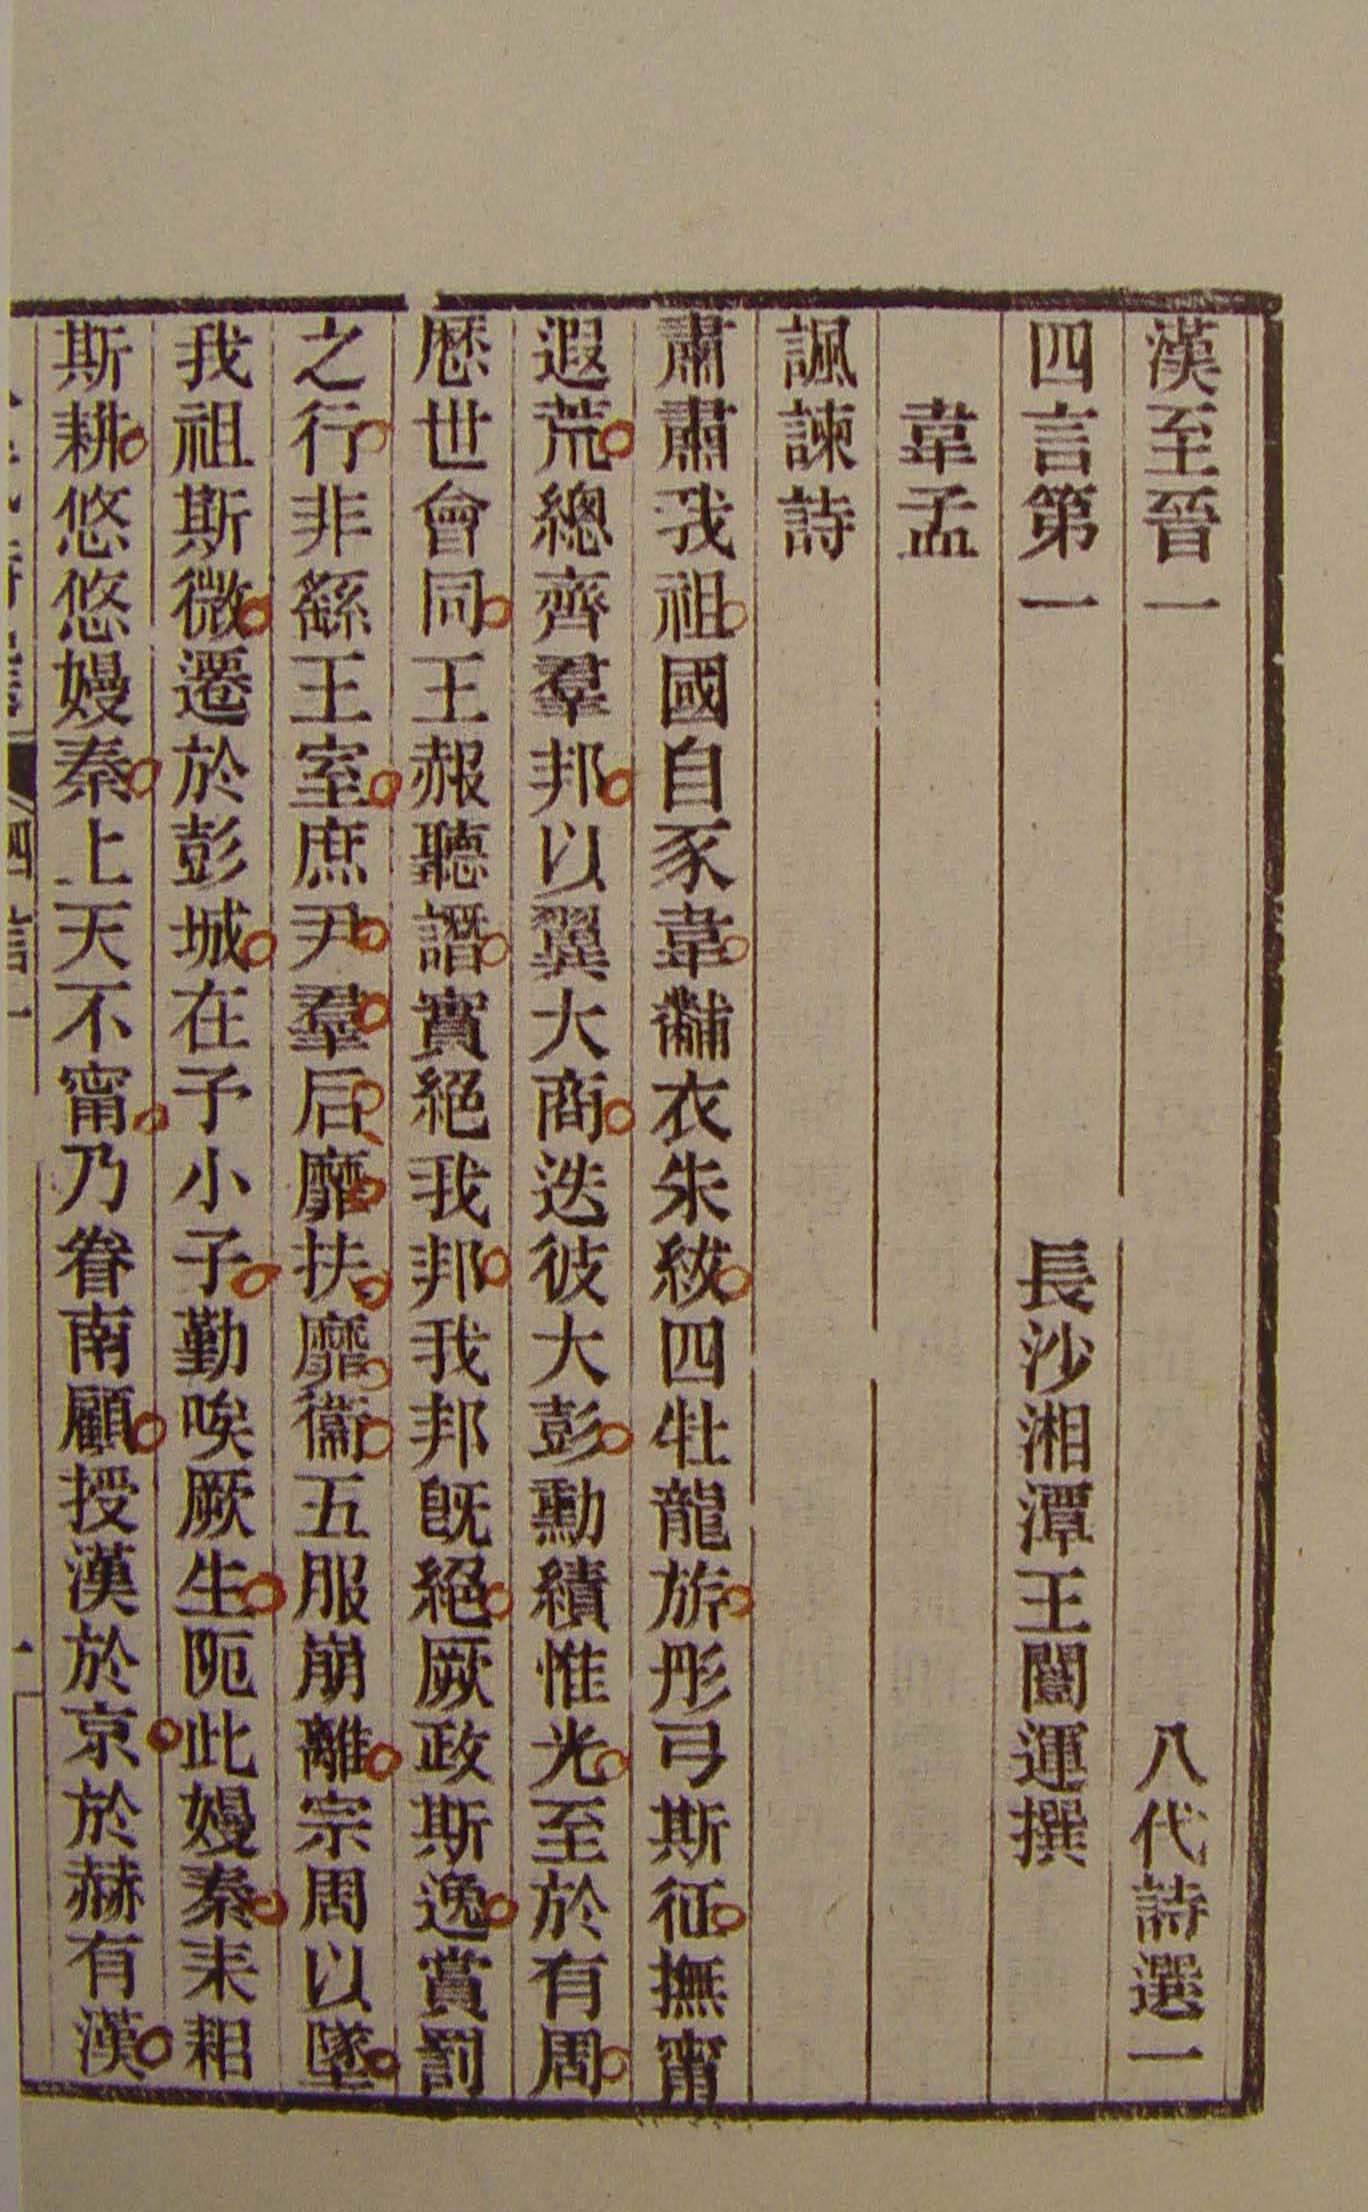 漢至晉一　八代詩選一
四言第一　長沙湘潭王闓運撰
韋孟
諷諫詩
肅肅我祖國自豕韋黼衣朱紱四牡龍旂彤弓斯征撫甯
遐荒總齊羣邦以翼大商迭彼大彭勳績惟光至於有周
歷世會同王赧聽譖實絕我邦我邦旣絕厥政斯逸賞罰
之行非繇王室庶尹羣后靡扶靡衞五服崩離宗周以墜
我祖斯微遷於彭城在予小子勤唉厥生阨此嫚秦耒耜
斯耕悠悠嫚秦上天不甯乃眷南顧授漢於京於赫有漢
四言一